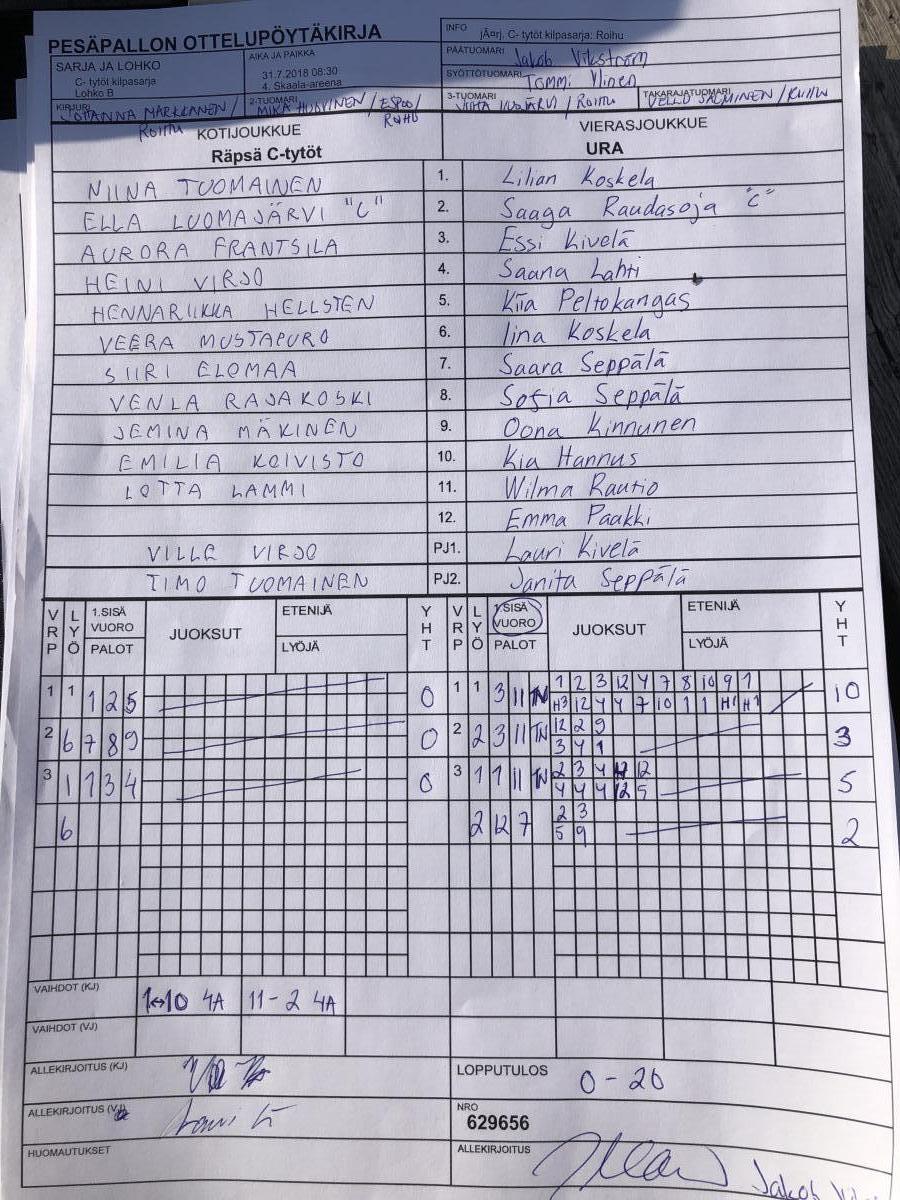 PESÄPALLON OTTELUPÖYTÄKIRJA
SARJA JA LOHKO
C- tytöt kilpasarja
Lohko B
AIKA JA PAIKKA
31.7.2018 08:30
4. Skaala-areena
INFO
jÄorj. C- tytöt kilpasarja: Roihu
PÄÄTUOMARI Jakob Vikström
SYÖTTÖTUOMARI Tommi Ylinen
KIRJURI JOHANNA MARKKANEN / ROIHU
2-TUOMARI MIKA / ESPOO / ROIHU
3-TUOMARI / Roihu
TAKARAJATUOMARI VELLO SALMINEN / ROIHU
KOTIJOUKKUE
Räpsä C-tytöt
VIERASJOUKKUE
URA
NIINA TUOMAINEN 1. Lilian Koskela
ELLA LUOMAJÄRVI "C" 2. Saaga Raudasoja "C"
AURORA FRANTSILA 3. Essi Kivelä
HEINI VIRJO 4. Saana Lahti
HENNARIIKKA HELLSTEN 5. Kiia Peltokangas
VEERA MUSTAPURO 6. Iina Koskela
SIIRI ELOMAA 7. Saara Seppälä
VENLA RAJAKOSKI 8. Sofia Seppälä
JEMINA MÄKINEN 9. Oona Kinnunen
EMILIA KOIVISTO 10. Kia Hannus
LOTTA LAMMI 11. Wilma Rautio
12. Emma Paakki
VILLE VIRJO PJ1. Lauri Kivelä
TIMO TUOMAINEN PJ2. Janita Seppälä
VRP LYÖ 1.SISÄ VUORO PALOT JUOKSUT ETENIJÄ LYÖJÄ YHT
VRP LYÖ 1.SISÄ VUORO PALOT JUOKSUT ETENIJÄ LYÖJÄ YHT
1 1 1 2 5 0
1 1 3 11 TN 1 2 3 12 4 7 8 10 9 1 10
H3 12 4 4 7 10 1 1 H1 H1
2 6 7 8 9 0
2 2 3 11 TN 12 2 9 3
3 4 1
3 1 1 3 4 0
3 1 1 11 TN 2 3 4 12 12 5
4 4 4 12 5
6
2 12 7 2 3 2
5 9
VAIHDOT (KJ) 1↔10 4A 11-2 4A
VAIHDOT (VJ)
ALLEKIRJOITUS (KJ)
LOPPUTULOS 0-20
ALLEKIRJOITUS (VJ) Lauri
NRO
629656
HUOMAUTUKSET
ALLEKIRJOITUS
Jakob